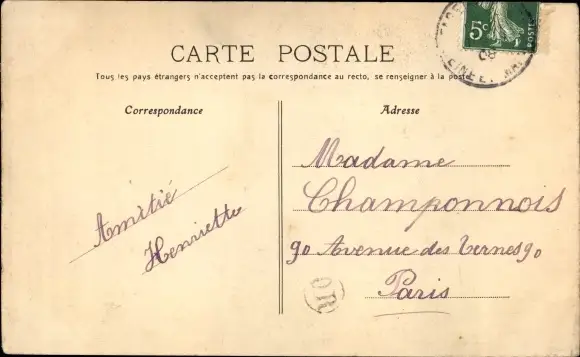 CARTE POSTALE
Tous les pays étrangers n'acceptent pas la correspondance au recto, se renseigner à la poste
Correspondance
Adresse
Amitié
Henriette
Madame
Champonnois
90 Avenue des Ternes 90
Paris
OR
5c
POSTES
08